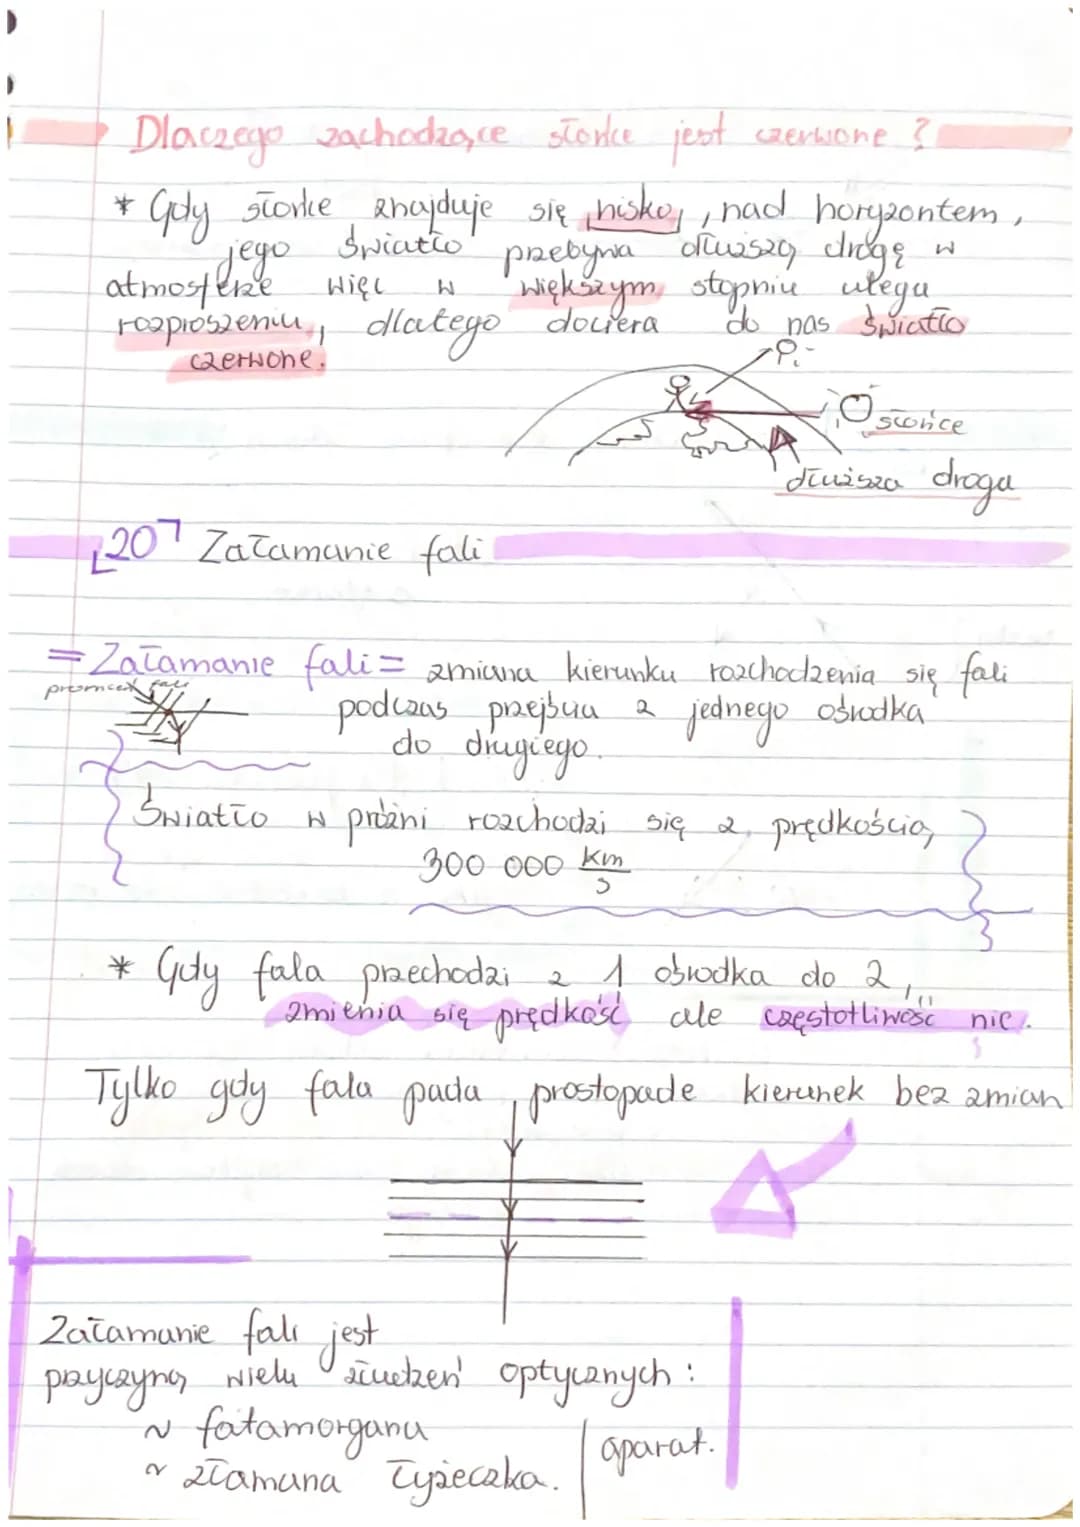 Dlaczego zachodzące słońce jest czerwone?
* Gdy słońce znajduje się nisko, nad horyzontem,
jego światło przebywa dłuższą drogę w
atmosferze więc w większym stopniu ulega
rozproszeniu, dlatego dociera do nas światło
czerwone.
słońce
dłuższa droga
20 Załamanie fali
= Załamanie fali = zmiana kierunku rozchodzenia się fali
promień fali
podczas przejścia z jednego ośrodka
do drugiego.
Światło w próżni rozchodzi się z prędkością
300 000 km/s
* Gdy fala przechodzi z 1 ośrodka do 2,
zmienia się prędkość ale częstotliwość nie.
Tylko gdy fala pada prostopade kierunek bez zmian
Załamanie fali jest
przyczyną wielu złudzeń optycznych:
~ fatamorgana
aparat.
~ złamana łyżeczka.